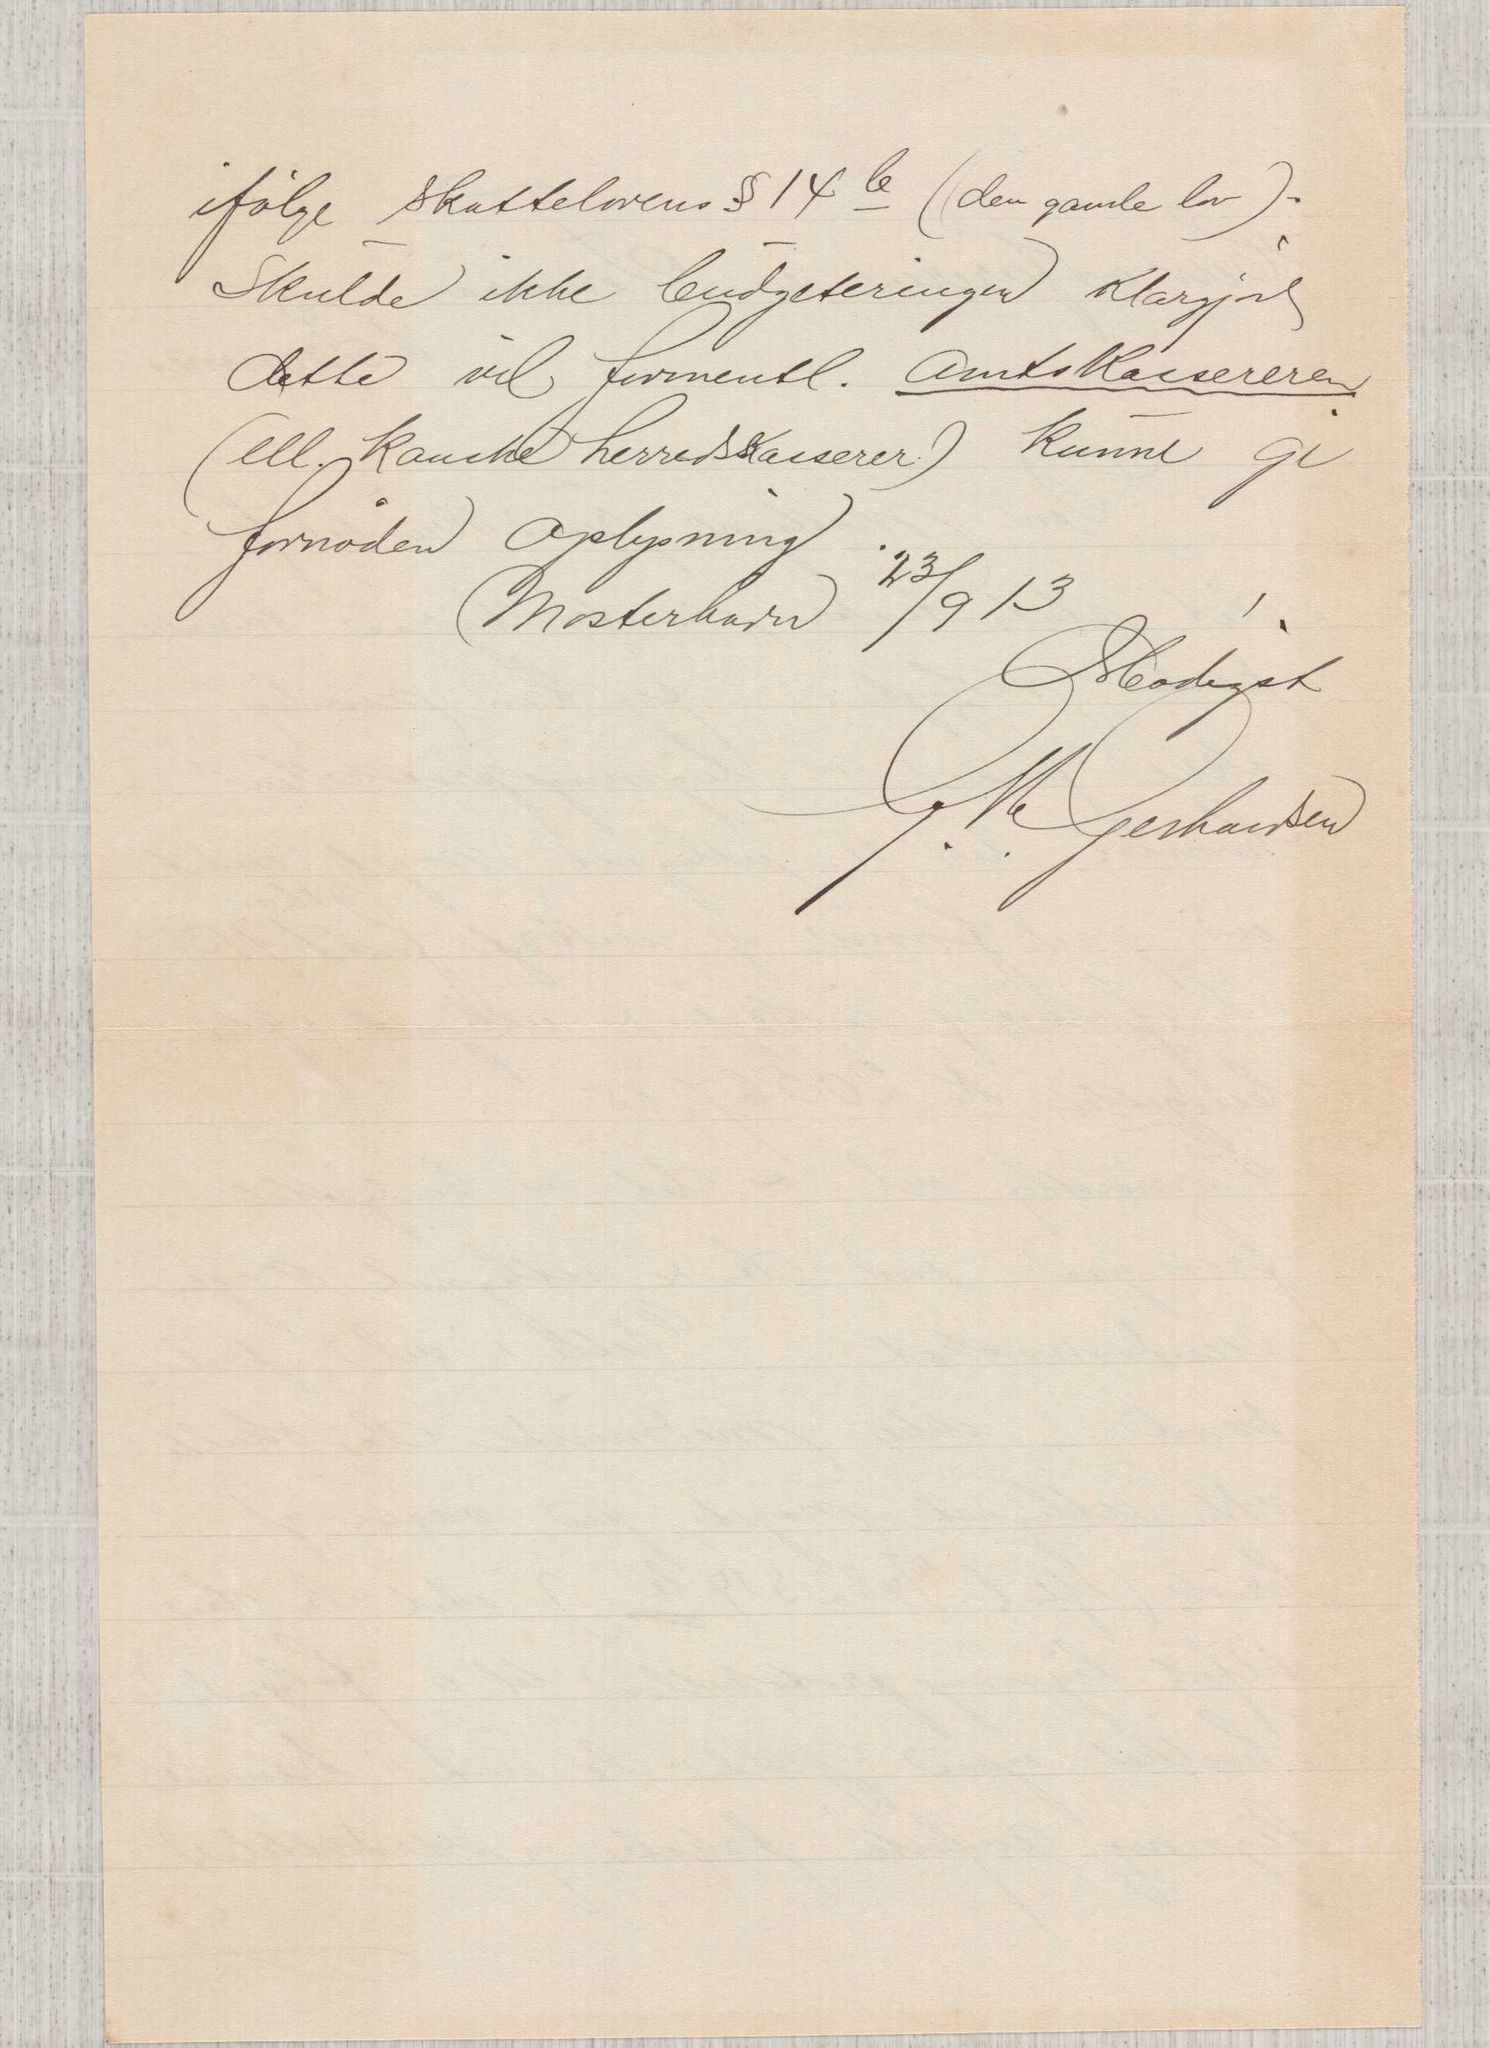 ifølge skattelovens § 14 b (den gamle lov).
Skulde ikke budgeteringen klargjøre
dette vil formentl. Amtskassereren
(ell. kanske herredskasserer) kunne gi
fornøden oplysning.
Mosterhavn 23/9 13
Ærbødigst
G. M. Gerhardsen